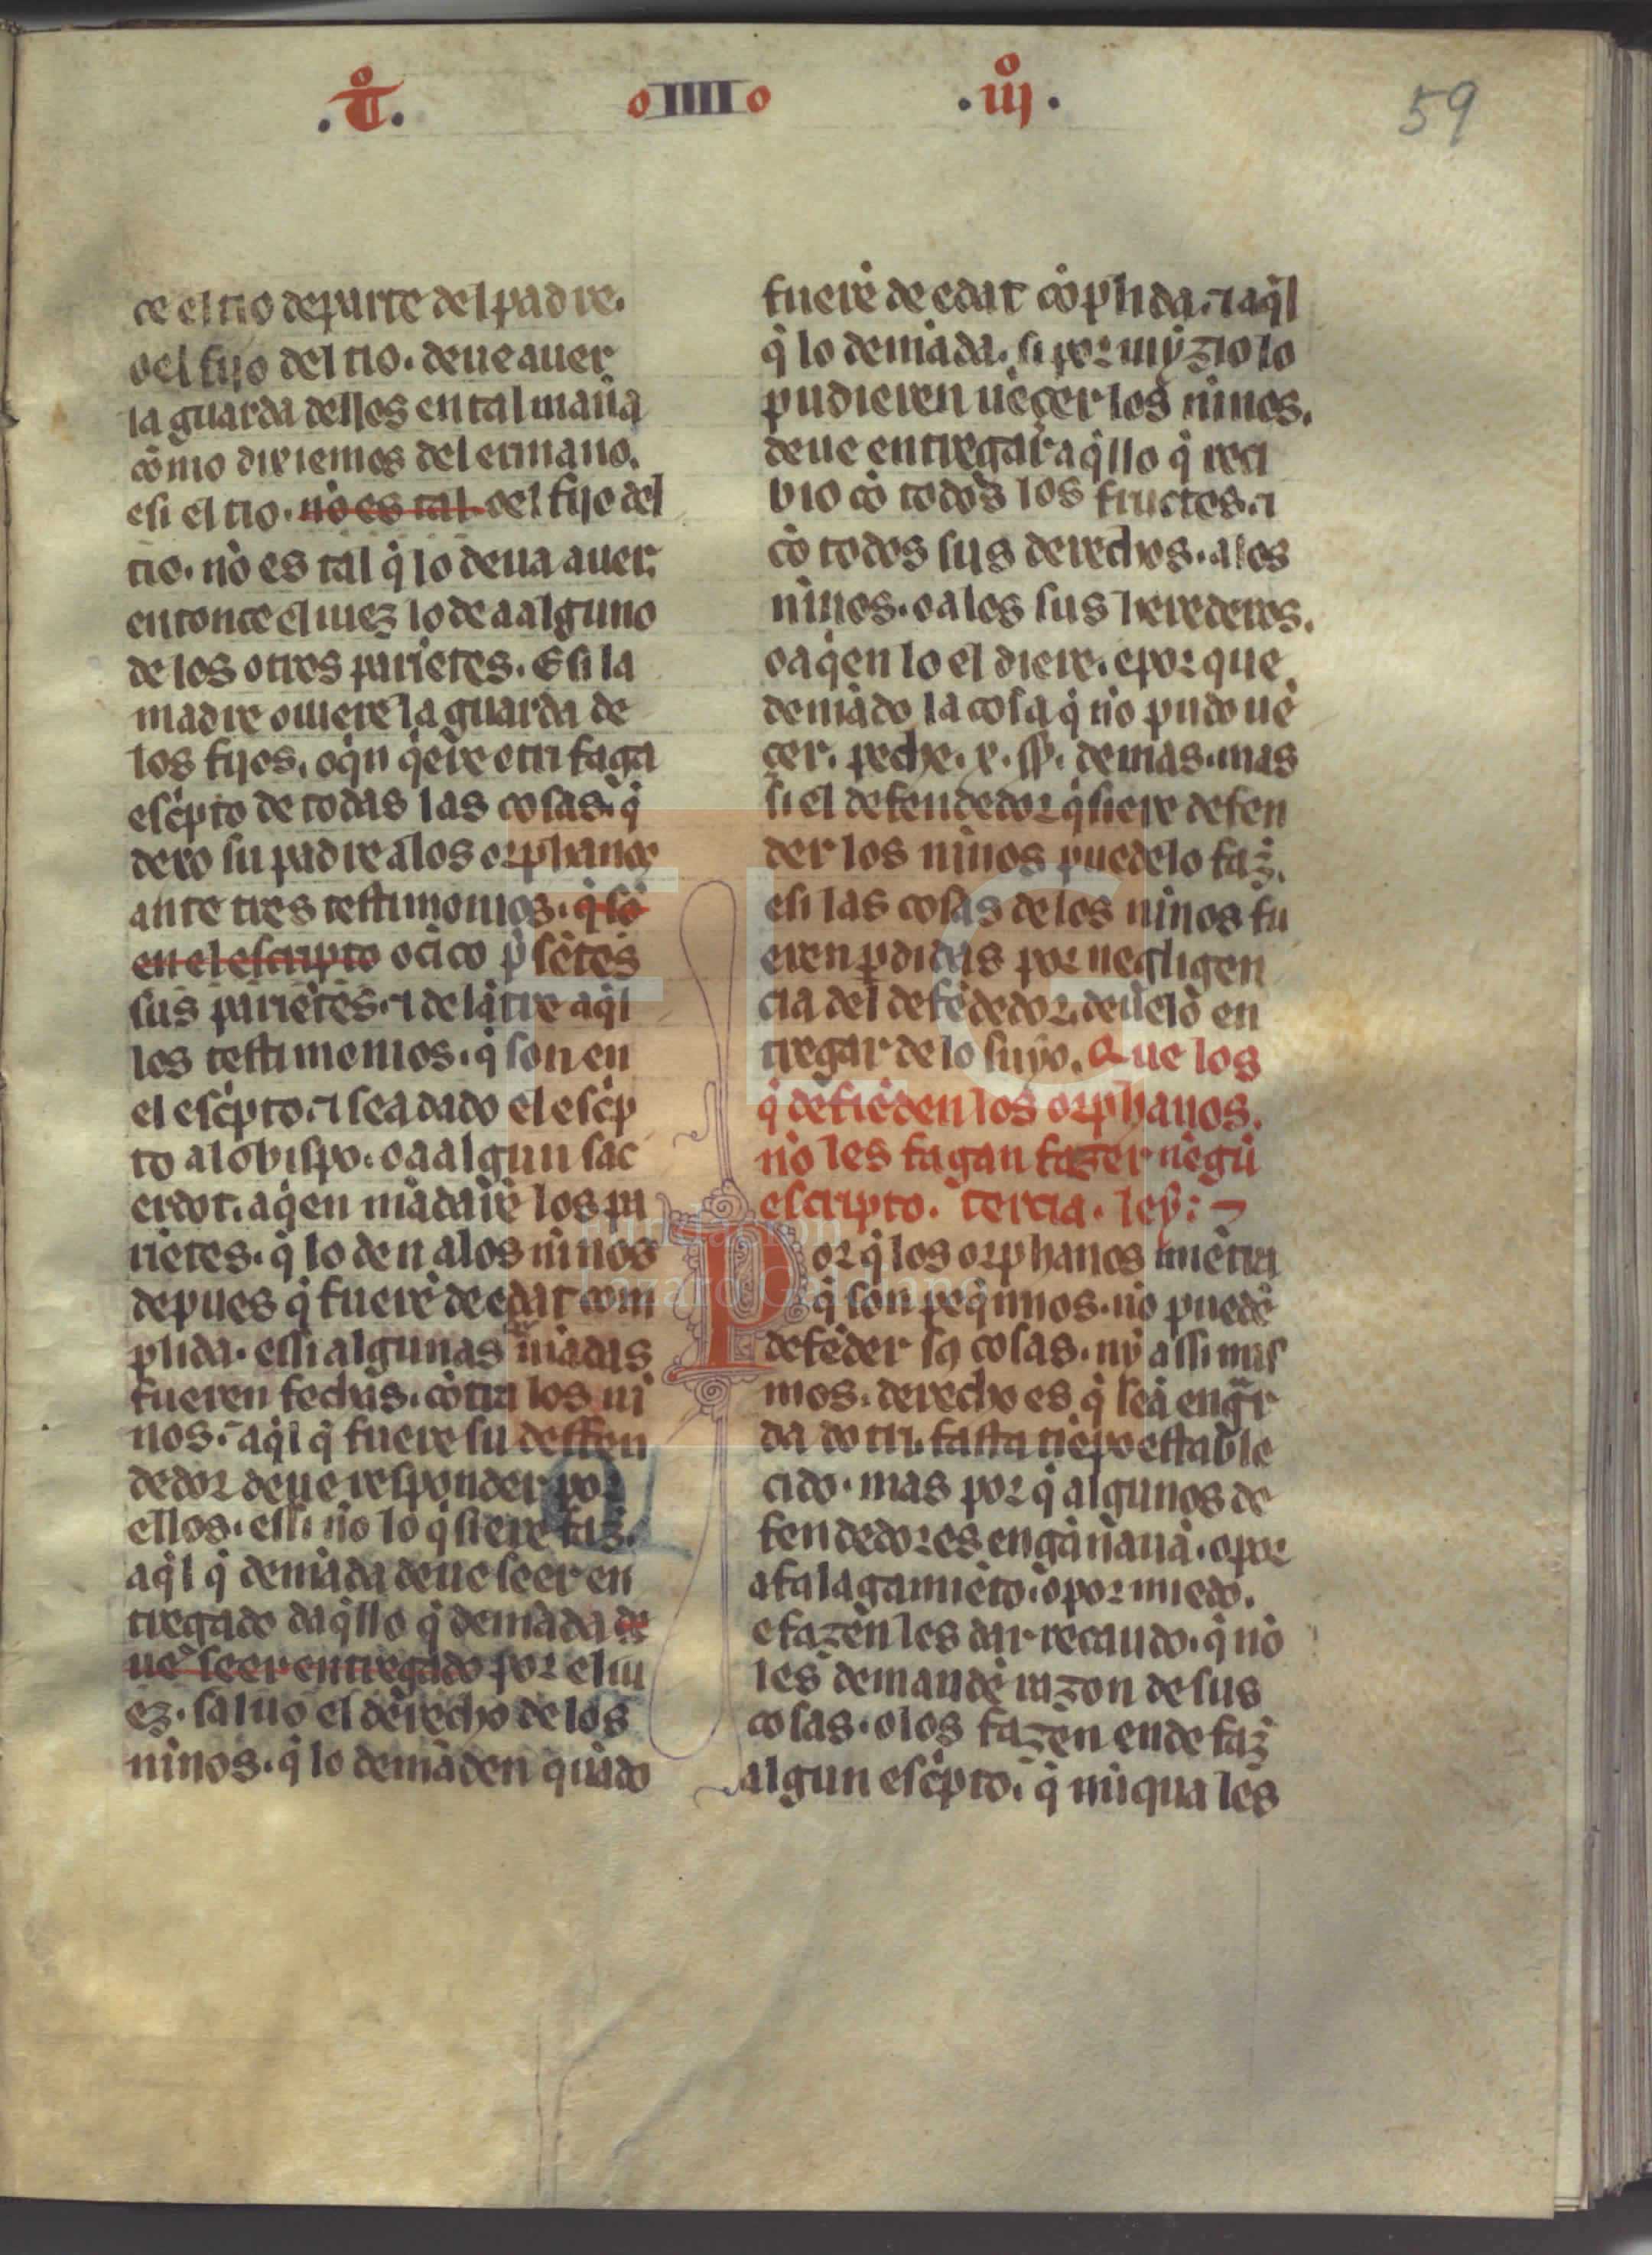 .t̊i. o IIII o .iij̊. 59
ce el tio departe del padre.
o el fijo del tio. deue auer
la guarda dellos en tal maña
cõmo diriemos del ermano.
e si el tio. nõ es tal o el fijo del
tio. nõ es tal q̃ lo deua auer.
entonce el iuez lo de a alguno
de los otros pariẽtes. E si la
madre ouiere la guarda de
los fijos. o q̃n q̃ere otri faga
esc̃pto de todas las cosas. q̃
dexo su padre a los orphanos
ante tres testimonios. q̃ sõ
en el escripto o cĩco p̃sẽtes
sus pariẽtes. ⁊ delãtre aq̃l
los testimonios. q̃ son en
el esc̃pto. ⁊ sea dado el esc̃p
to al obispo. o a algun sac
erdot. a q̃en mãdarẽ los pa
riẽtes. q̃ lo den a los ninos
depues q̃ fuerẽ de edat com
plida. e ssi algunas mãdas
fueren fechas. cõtra los ni
nos. aq̃l q̃ fuere su deffen
dedor deue responder por
ellos. e ssi nõ lo q̃siere faz̃.
aq̃l q̃ demãda deue seer en
tregado daq̃llo q̃ demãda de
ue seer entregado por el iu
ez. saluo el derecho de los
ninos. q̃ lo demãden quãdo
fuerẽ de edat cõplida. ⁊ aq̃l
q̃ lo demãda. si por iuyzio lo
pudieren uẽçer los ninos.
deue entregar aq̃llo q̃ reci
bio cõ todos los fructos. ⁊
cõ todos sus derechos. a los
ninos. o a los sus herederos.
o a q̃en lo el diere. e por que
demãdo la cosa q̃ nõ pudo uẽ
çer. peche. x. ss̃. demas. mas
si el defendedor q̃siere defen
der los ninos puedelo faz̃.
e si las cosas de los ninos fu
eren p̱didas por negligen
cia del defẽdedor. deuelo en
tregar de lo suyo. Que los
q̃ defiẽden los orphanos.
nõ les fagan fazer nẽgũ
escripto. tercia. ley:
Por q̃ los orphanos miẽtra
q̃ son peq̃nnos. nõ puedẽ
defẽder sus cosas. ny assi mis
mos. derecho es q̃ seã en gar
da dotri. fasta tiẽpo estable
cido. mas por q̃ algunos de
fendedores engãnauã. o por
afalagamiẽto. o por miedo.
e fazẽn les dar recaudo. q̃ nõ
les demandẽ razon de sus
cosas. o los fazẽn ende faz̃
algun esc̃pto. q̃ nũqua les
Fundación
Lázaro Galdiano